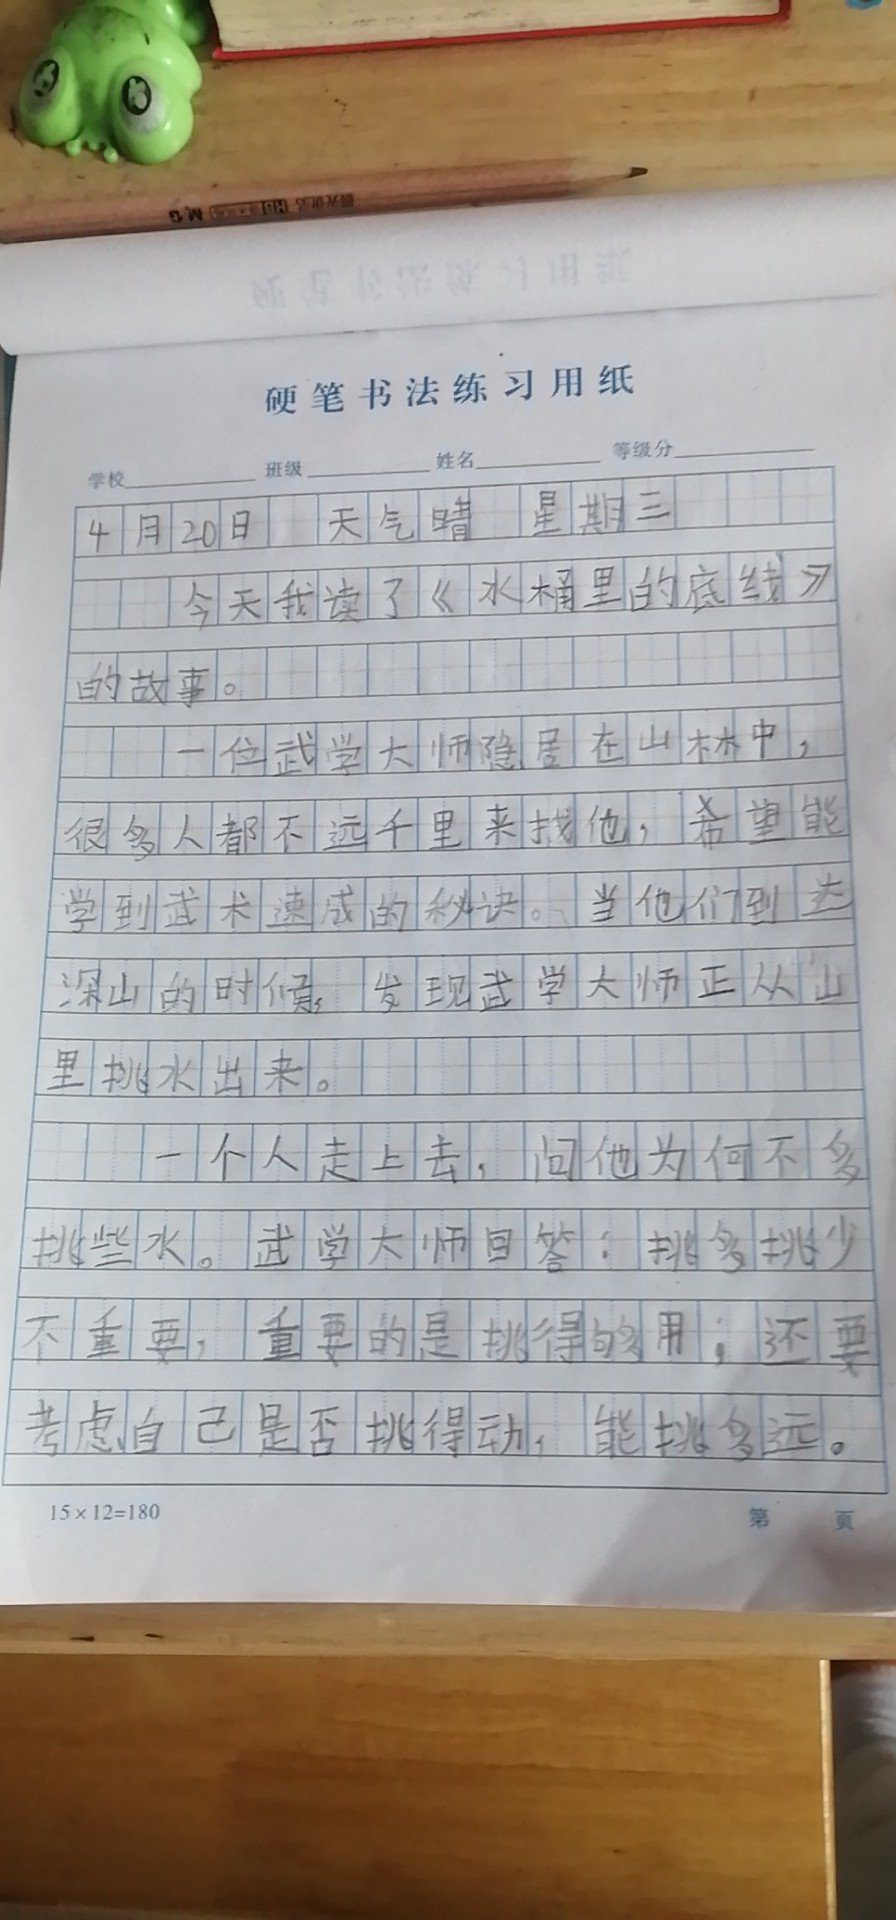 硬笔书法练习用纸
学校 班级 姓名 等级分
4月20日 天气晴 星期三
今天我读了《水桶里的底线》
的故事。
一位武学大师隐居在山林中，
很多人都不远千里来找他，希望能
学到武术速成的秘诀。当他们到达
深山的时候，发现武学大师正从山
里挑水出来。
一个人走上去，问他为何不多
挑些水。武学大师回答：挑多挑少
不重要，重要的是挑得够用；还要
考虑自己是否挑得动，能挑多远。
15×12=180 第 页